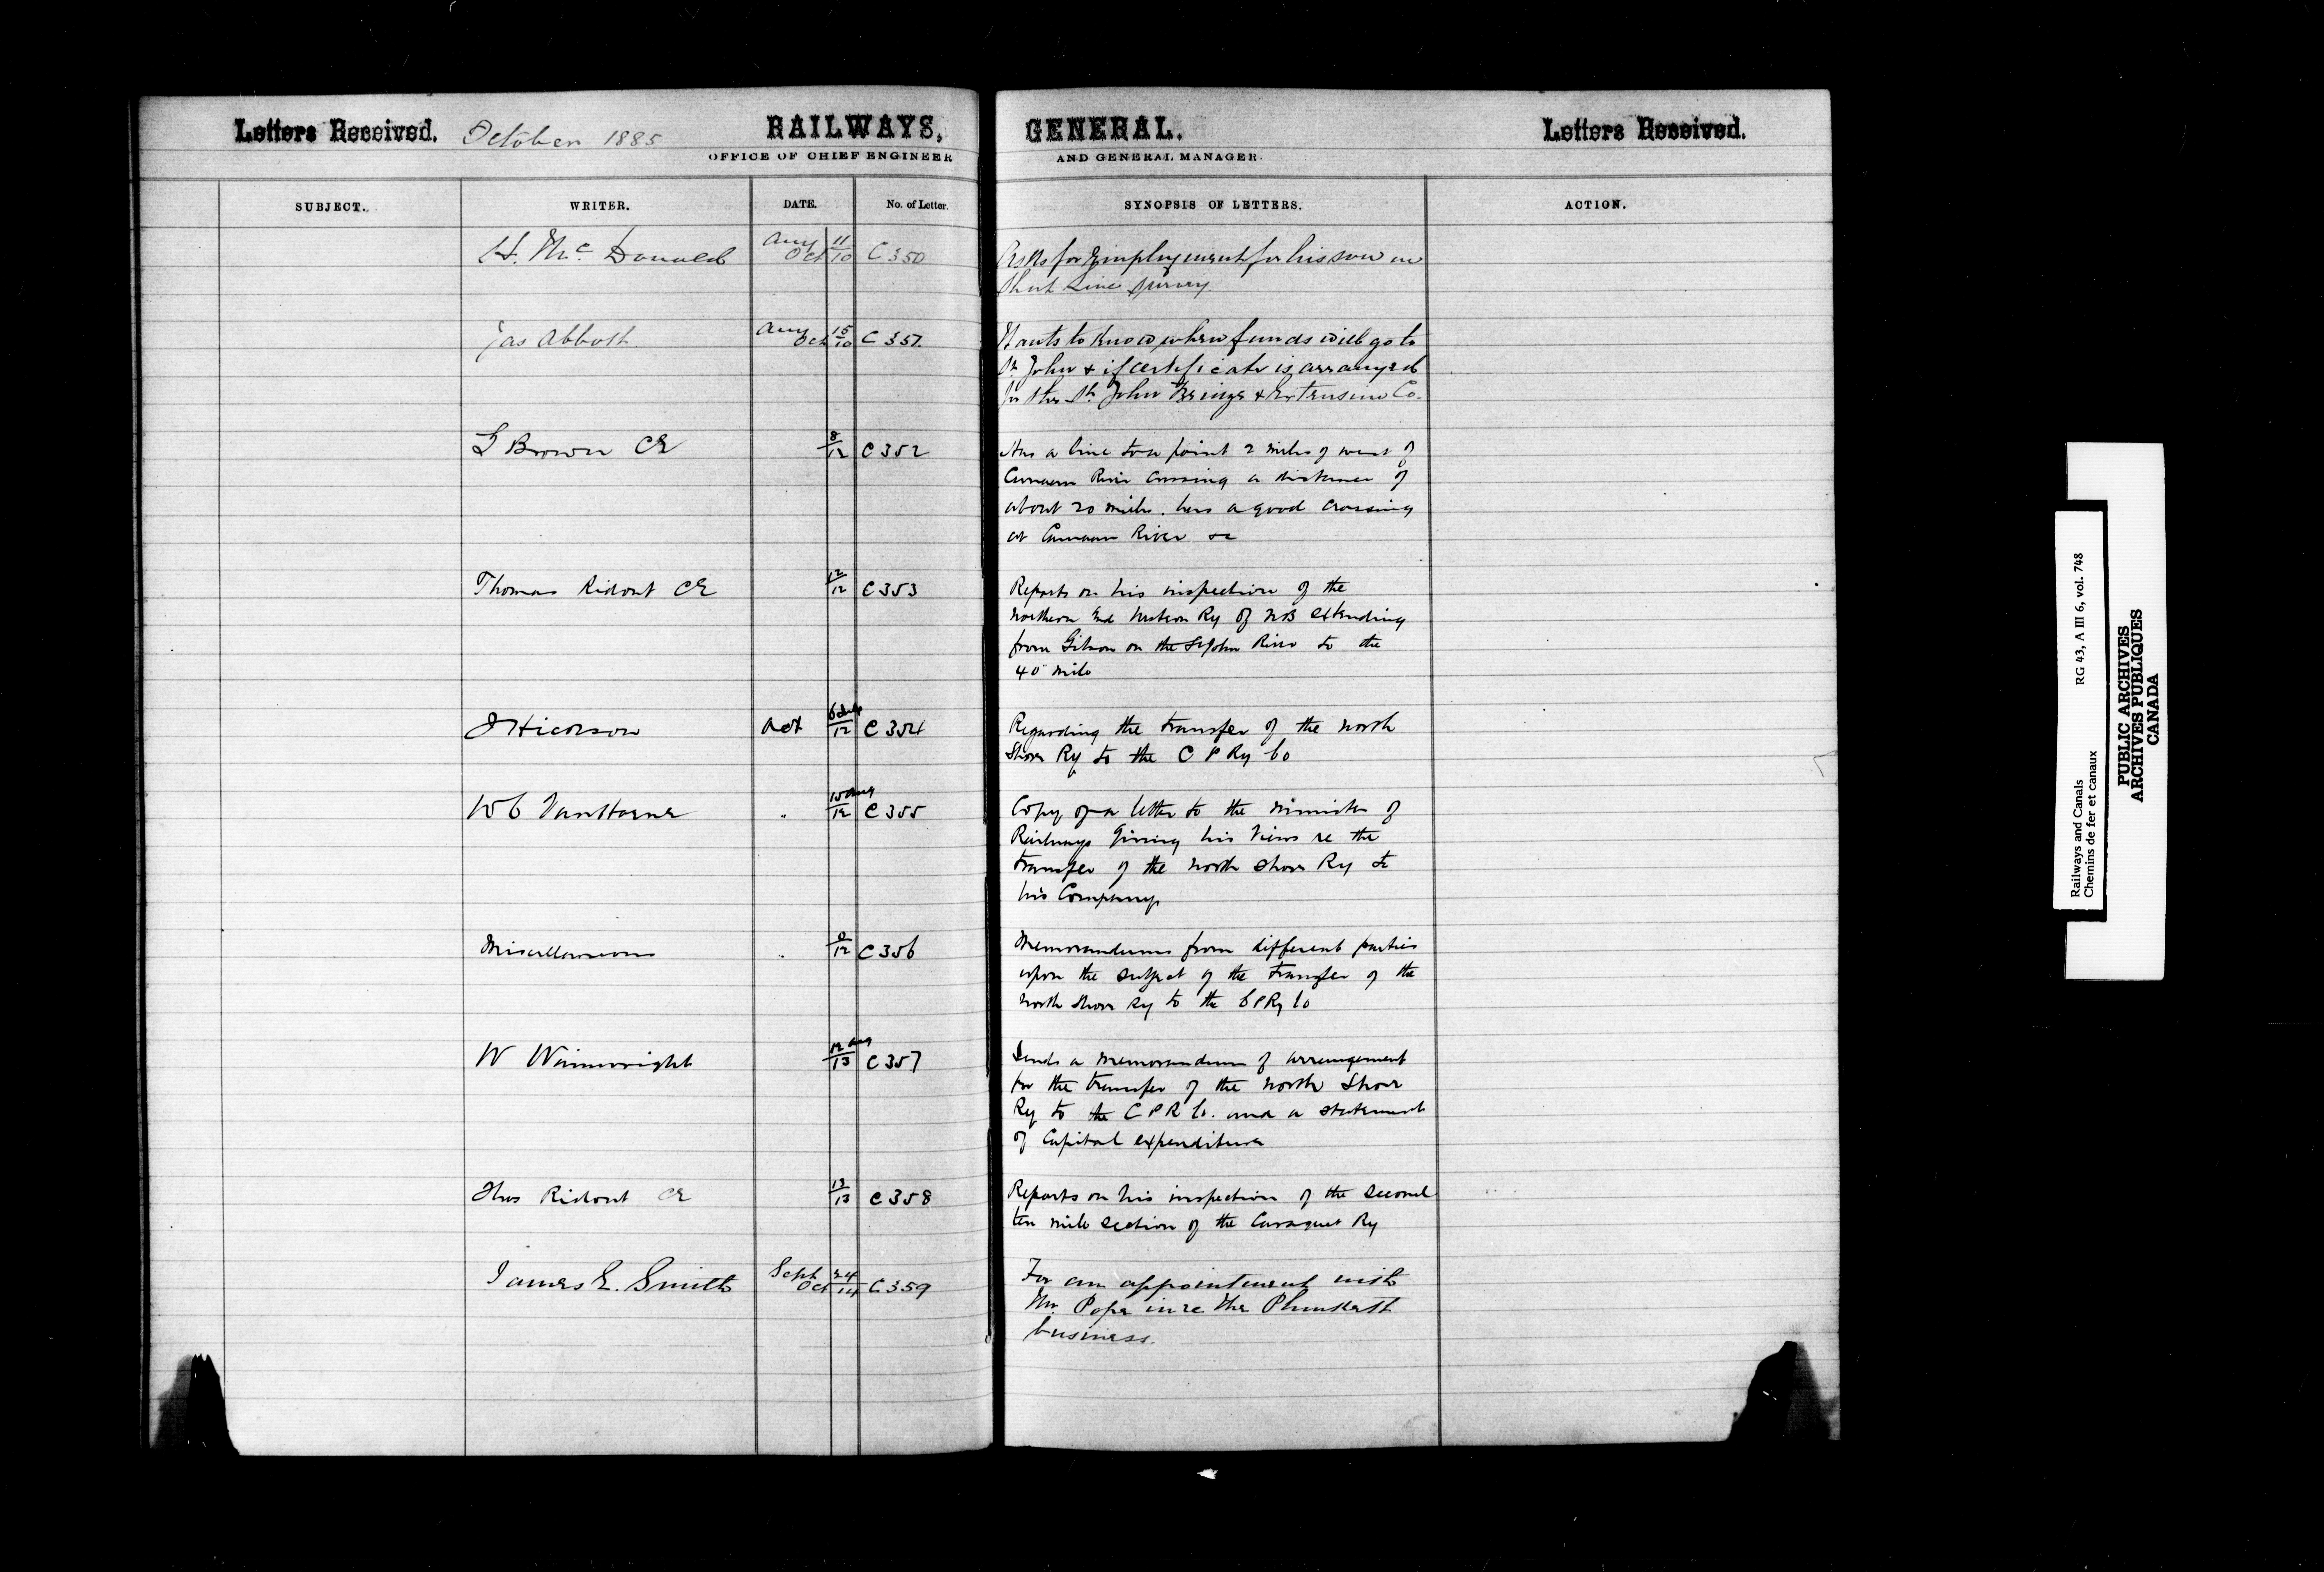 Letters Received. October 1885 RAILWAYS, GENERAL. Letters Received.
OFFICE OF CHIEF ENGINEER AND GENERAL MANAGER.
SUBJECT. WRITER. DATE. No. of Letter. SYNOPSIS OF LETTERS. ACTION.
H. McDonald Aug 11 Oct 10 C350 Asks for Employment for his son on
Short Line Survey.
Jas Abbott Aug 15 Oct 10 C351 Wants to know when funds will go to
St. John & if certificate is arranged
for the St. John Bridge & Extension Co.
G Brown CE 8/12 C352 Has a line to a point 2 miles of west of
Canaan River Crossing a distance of
about 20 miles. has a good crossing
at Canaan River &c
Thomas Ridout CE 12/12 C353 Reports on his inspection of the
Northern and Western Ry of NB extending
from Gibson on the St John River to the
40" mile
J Hickson Oct 12 C354 Regarding the transfer of the North
Shore Ry to the C P Ry Co
W C Van Horne " 15 Aug/12 C355 Copy of a letter to the Minister of
Railways Giving his views re the
transfer of the North Shore Ry to
his Company
Miscellaneous " 12 C356 Memorandums from different parties
upon the subject of the transfer of the
North Shore Ry to the C P Ry Co
W Wainwright 12 Aug/13 C357 Sends a memorandum of arrangement
for the transfer of the North Shore
Ry to the C P R Co. and a statement
of Capital expenditure
Thos Ridout CE 13/13 C358 Reports on his inspection of the second
ten mile section of the Caraquet Ry
James E. Smith Sept 24 Oct 14 C359 For an appointment with
Mr. Pope in re the
business.
Railways and Canals RG 43, A III 6, vol. 748
Chemins de fer et canaux
PUBLIC ARCHIVES
ARCHIVES PUBLIQUES
CANADA